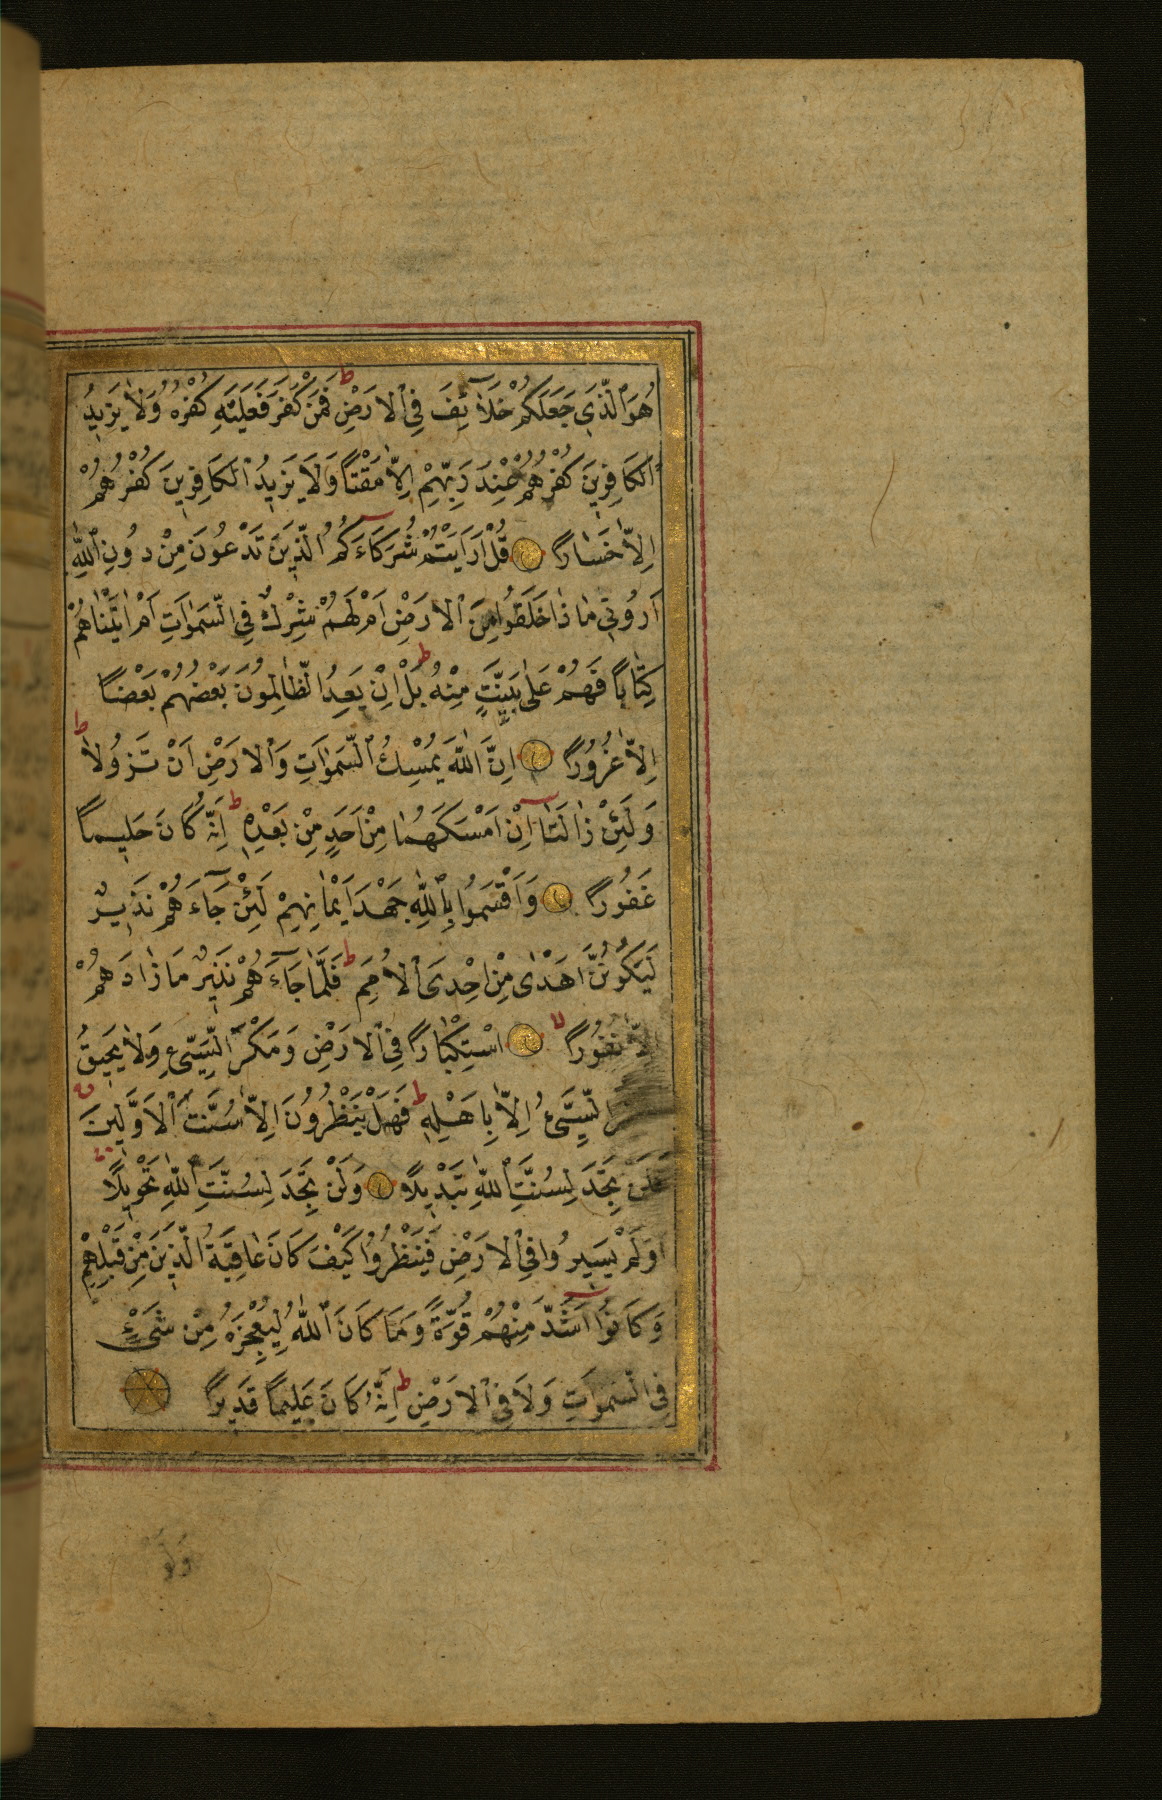 هُوَ ٱلَّذِي جَعَلَكُمْ خَلَآئِفَ فِي ٱلْاَرَضِ ط فَمَنْ كَفَرَ فَعَلَيْهِ كُفْرُهُ وَلَا يَزِيدُ
ٱلكَافِرِينَ كُفْرُهُمْ عِنْدَ رَبِّهِمْ اِلَّا مَقْتًا وَلَا يَزِيدُ ٱلكَافِرِينَ كُفْرُهُمْ
اِلَّا خَسَارًا قُلْ اَرَاَيْتُمْ شُرَكَآءَكُمُ ٱلَّذِينَ تَدْعُونَ مِنْ دُونِ ٱللّٰهِ
اَرُونِي مَاذَا خَلَقُوا مِنَ ٱلْاَرَضِ اَمْ لَهُمْ شِرْكٌ فِي ٱلسَّمٰوَاتِ اَمْ اٰتَيْنَاهُمْ
كِتَابًا فَهُمْ عَلٰى بَيِّنَتٍ مِنْهُ ط بَلْ اِنْ يَعِدُ ٱلظَّالِمُونَ بَعْضُهُمْ بَعْضًا
اِلَّا غُرُورًا اِنَّ ٱللّٰهَ يُمْسِكُ ٱلسَّمٰوَاتِ وَٱلْاَرَضَ اَنْ تَزُولَا ط
وَلَئِنْ زَالَتَآ اِنْ اَمْسَكَهُمَا مِنْ اَحَدٍ مِنْ بَعْدِهِ ط اِنَّهُ كَانَ حَلِيمًا
غَفُورًا وَاَقْسَمُوا بِٱللّٰهِ جَهْدَ اَيْمَانِهِمْ لَئِنْ جَآءَهُمْ نَذِيرٌ
لَيَكُونُنَّ اَهْدٰى مِنْ اِحْدَى ٱلْاُمَمِ ط فَلَمَّا جَآءَهُمْ نَذِيرٌ مَا زَادَهُمْ
اِلَّا نُفُورًا لا اسْتِكْبَارًا فِي ٱلْاَرَضِ وَمَكْرَ ٱلسَّيِّئِ وَلَا يَحِيقُ
ٱلسَّيِّئُ اِلَّا بِاَهْلِهِ ط فَهَلْ يَنْظُرُونَ اِلَّا سُنَّتَ ٱلْاَوَّلِينَ
فَلَنْ تَجِدَ لِسُنَّتِ ٱللّٰهِ تَبْدِيلًا وَلَنْ تَجِدَ لِسُنَّتِ ٱللّٰهِ تَحْوِيلًا
اَوَلَمْ يَسِيرُوا فِي ٱلْاَرَضِ فَيَنْظُرُوا كَيْفَ كَانَ عَاقِبَةُ ٱلَّذِينَ مِنْ قَبْلِهِمْ
وَكَانُوٓا اَشَدَّ مِنْهُمْ قُوَّةً وَمَا كَانَ ٱللّٰهُ لِيُعْجِزَهُ مِنْ شَيْءٍ
فِي ٱلسَّمٰوَاتِ وَلَا فِي ٱلْاَرَضِ ط اِنَّهُ كَانَ عَلِيمًا قَدِيرًا
وَلَوْ